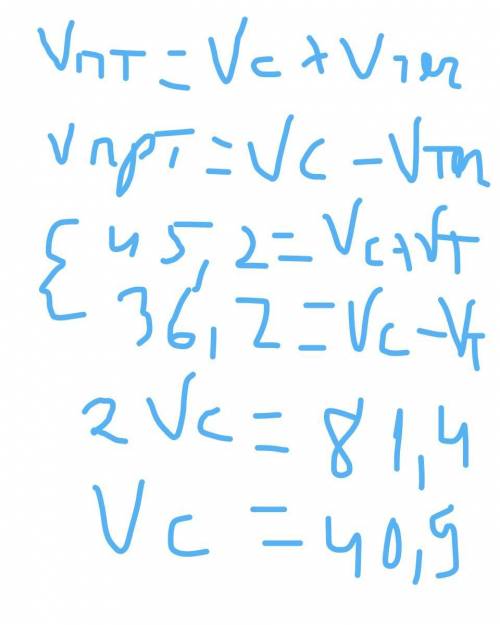 Vпт = Vс + Vтеч
Vпрт = Vс - Vтеч
{ 45,2 = Vс + Vт
36,2 = Vс - Vт
2Vс = 81,4
Vс = 40,5